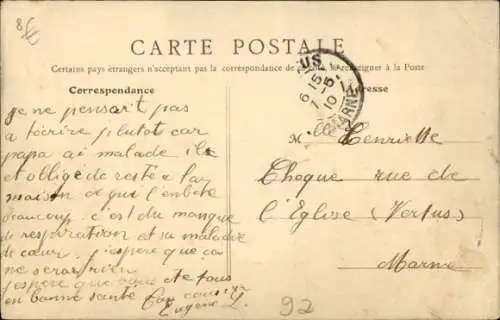 CARTE POSTALE
Certains pays étrangers n'acceptant pas la correspondance de se renseigner à la Poste
Correspondance
je ne pensait pas
a técrire plutot car
papa ai malade il
et obligé de resté a la
maison ce qui l'enbete
beaucoup. c'est du manque
de respiration et sa maladie
de cœur. j'espere que ca
ne seras rien
j'espere que vous ete tous
en bonne santé Ton
Eugene L.
Adresse
Melle Henriette
Choque rue de
l'Eglise (Vertus)
Marne
US
6 15
7 5
10
MARNE
92